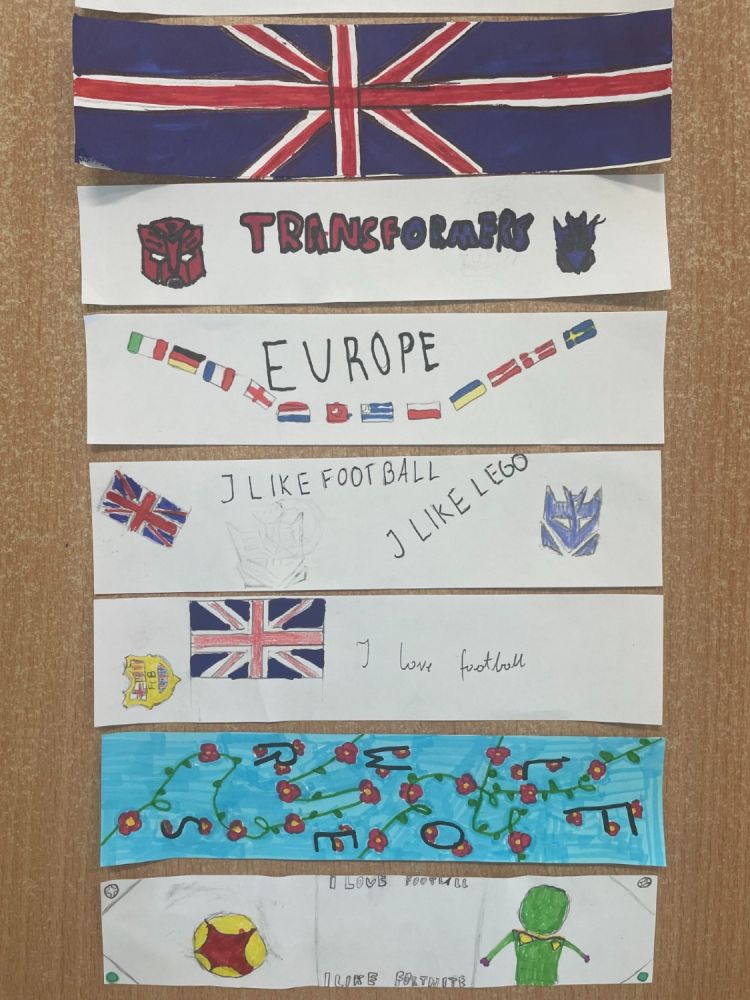 TRANSFORMERS
EUROPE
I LIKE FOOTBALL
I LIKE LEGO
FCB
I love football
FLOWERS
I LOVE FOOTBALL
I LIKE FORTNITE